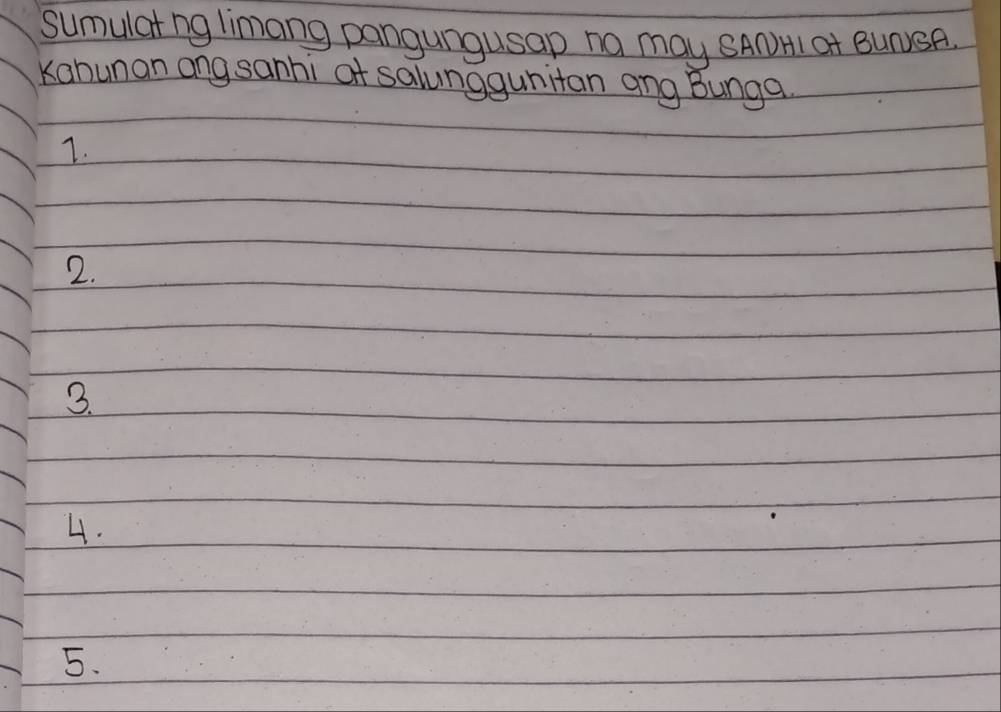 Sumulat ng limang pangungusap na may SANHI at BUNGA.
Kahunan ang sanhi at salungguhitan ang Bunga.
1.
2.
3.
4.
5.